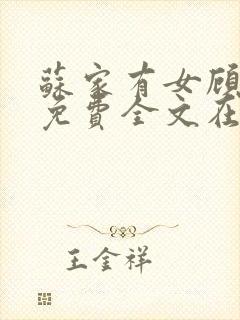 蘇家有女顾
免費全文在
王金祥